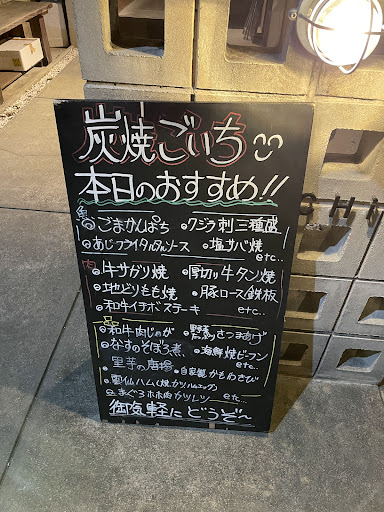 炭焼ごいち
本日のおすすめ!!
魚
ごまかんぱち ・クジラ刺三種盛
・あじフライタルタルソース ・塩サバ焼
etc...
肉
牛サガリ焼 ・厚切り牛タン焼
・地どりもも焼 ・豚ロース鉄板
・和牛イチボステーキ etc...
品
・和牛肉じゃが ・野菜さつまあげ
・なすのそぼろ煮 ・海鮮焼ビーフン
里芋の唐揚 etc...
・自家製かもわさび
ハム
・まぐろホホ肉カツレツ etc...
御気軽にどうぞ〜
CHI